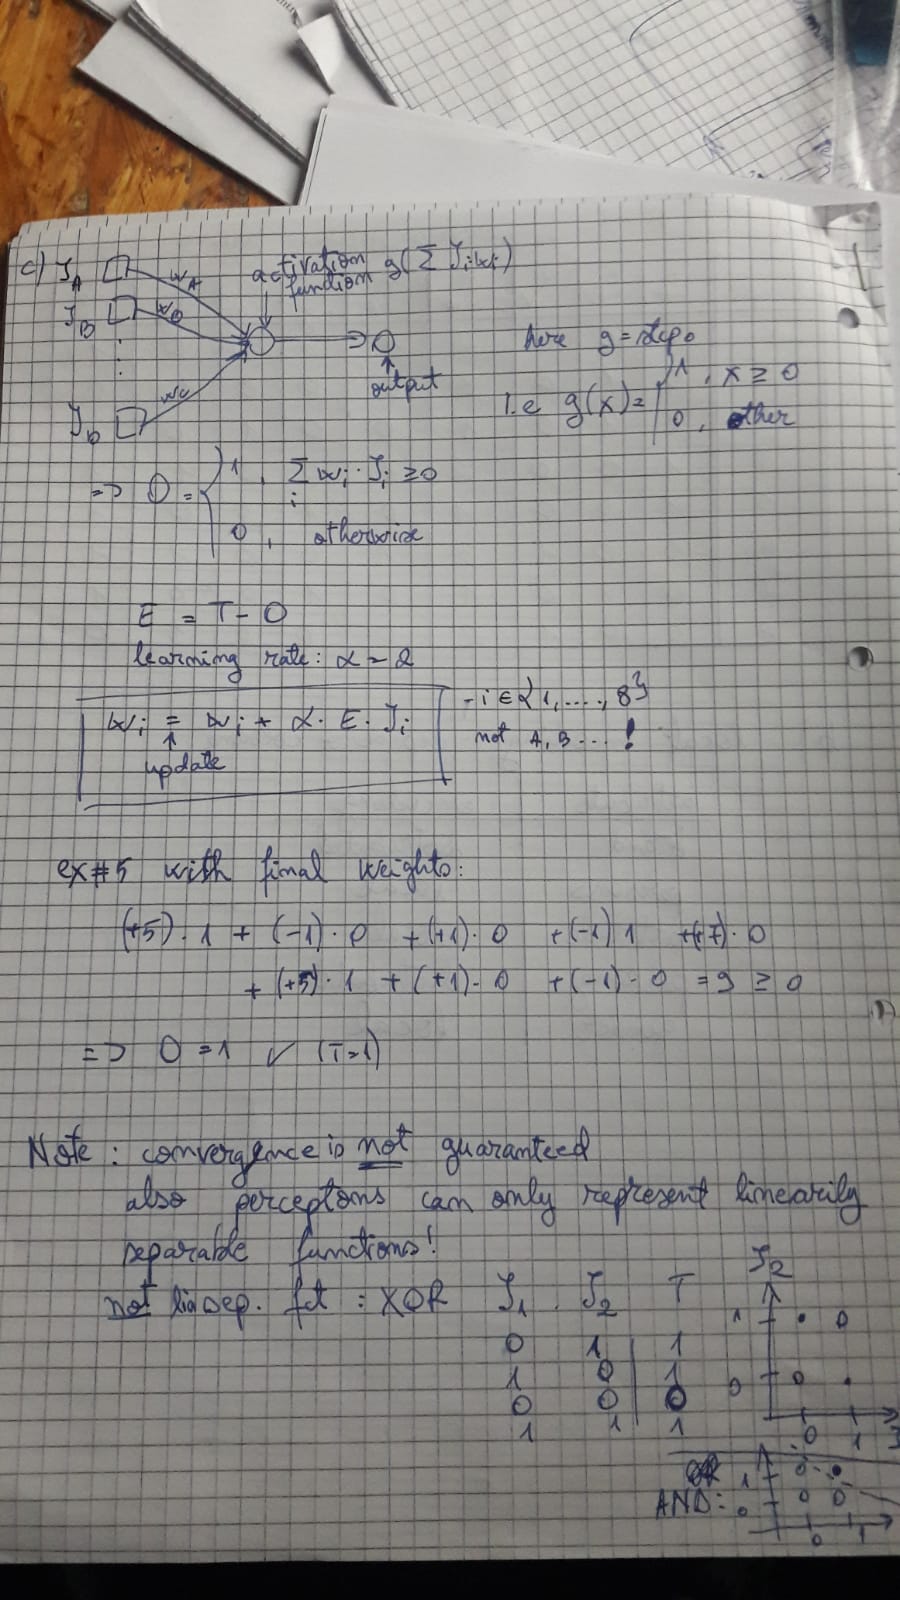 c) I_A w_A activation function g(Σ I_i w_i)
I_B w_B
⋮
O
output
I_D w_C
here g = step₀
i.e g(x) = { 1 , x ≥ 0
0 , other
=> O = { 1 , Σ_i w_i · I_i ≥ 0
0 , otherwise
E = T - O
learning rate: α = 2
w_i = w_i + α · E · I_i
↑
update
- i ∈ {1, ...., 8}
not A, B ... !
ex#5 with final weights:
(+5) · 1 + (-1) · 0 + (+1) · 0 + (-1) 1 + (+7) · 0
+ (+5) · 1 + (+1) · 0 + (-1) · 0 = 9 ≥ 0
=> O = 1 ✓ (T=1)
Note : convergence is not guaranteed
also perceptoms can only represent linearily
separable functions!
not lin sep. fct : XOR I_1 I_2 T
0 1 1
1 0 1
0 0 0
1 1 1
I_2
1
0
0 1
OR
AND:
1
0
0 1